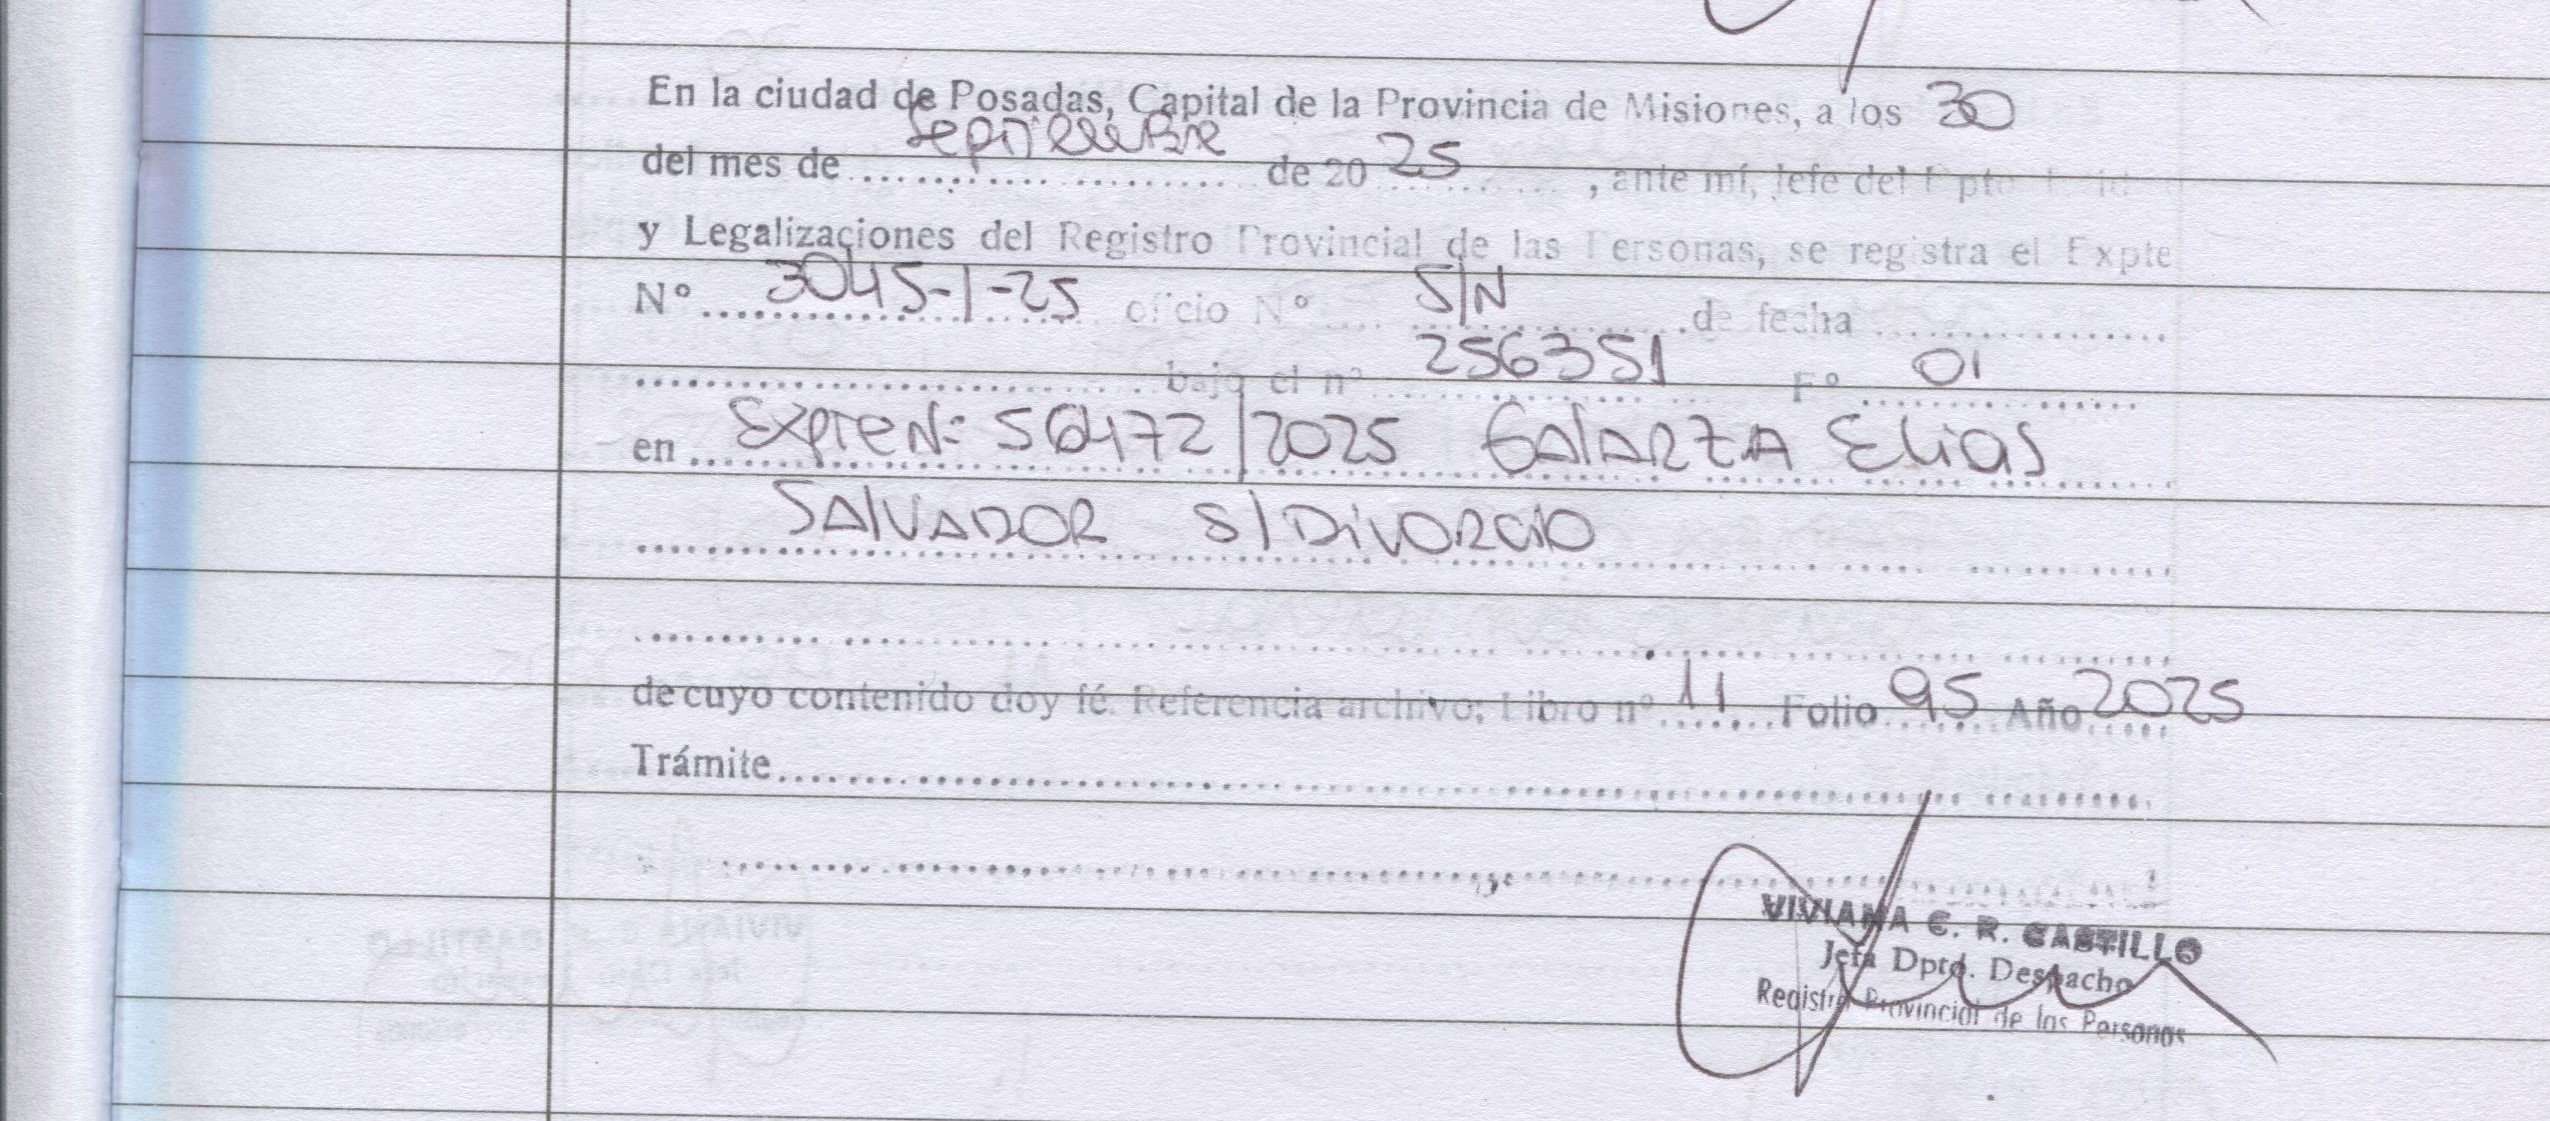 En la ciudad de Posadas, Capital de la Provincia de Misiones, a los 30
del mes de septiembre de 2025, ante mí, Jefe del Dpto
y Legalizaciones del Registro Provincial de las Personas, se registra el Expte
Nº 3045-1-25 oficio Nº S/N de fecha
bajo el nº 256351 Fº 01
en Expte N: 56472/2025 GALARZA Elias
SALVADOR S/DIVORCIO
de cuyo contenido doy fé. Referencia archivo; Libro nº 11 Folio 95 Año 2025
Trámite
VIVIANA C. R. CASTILLO
Jefa Dpto. Despacho
Registro Provincial de las Personas